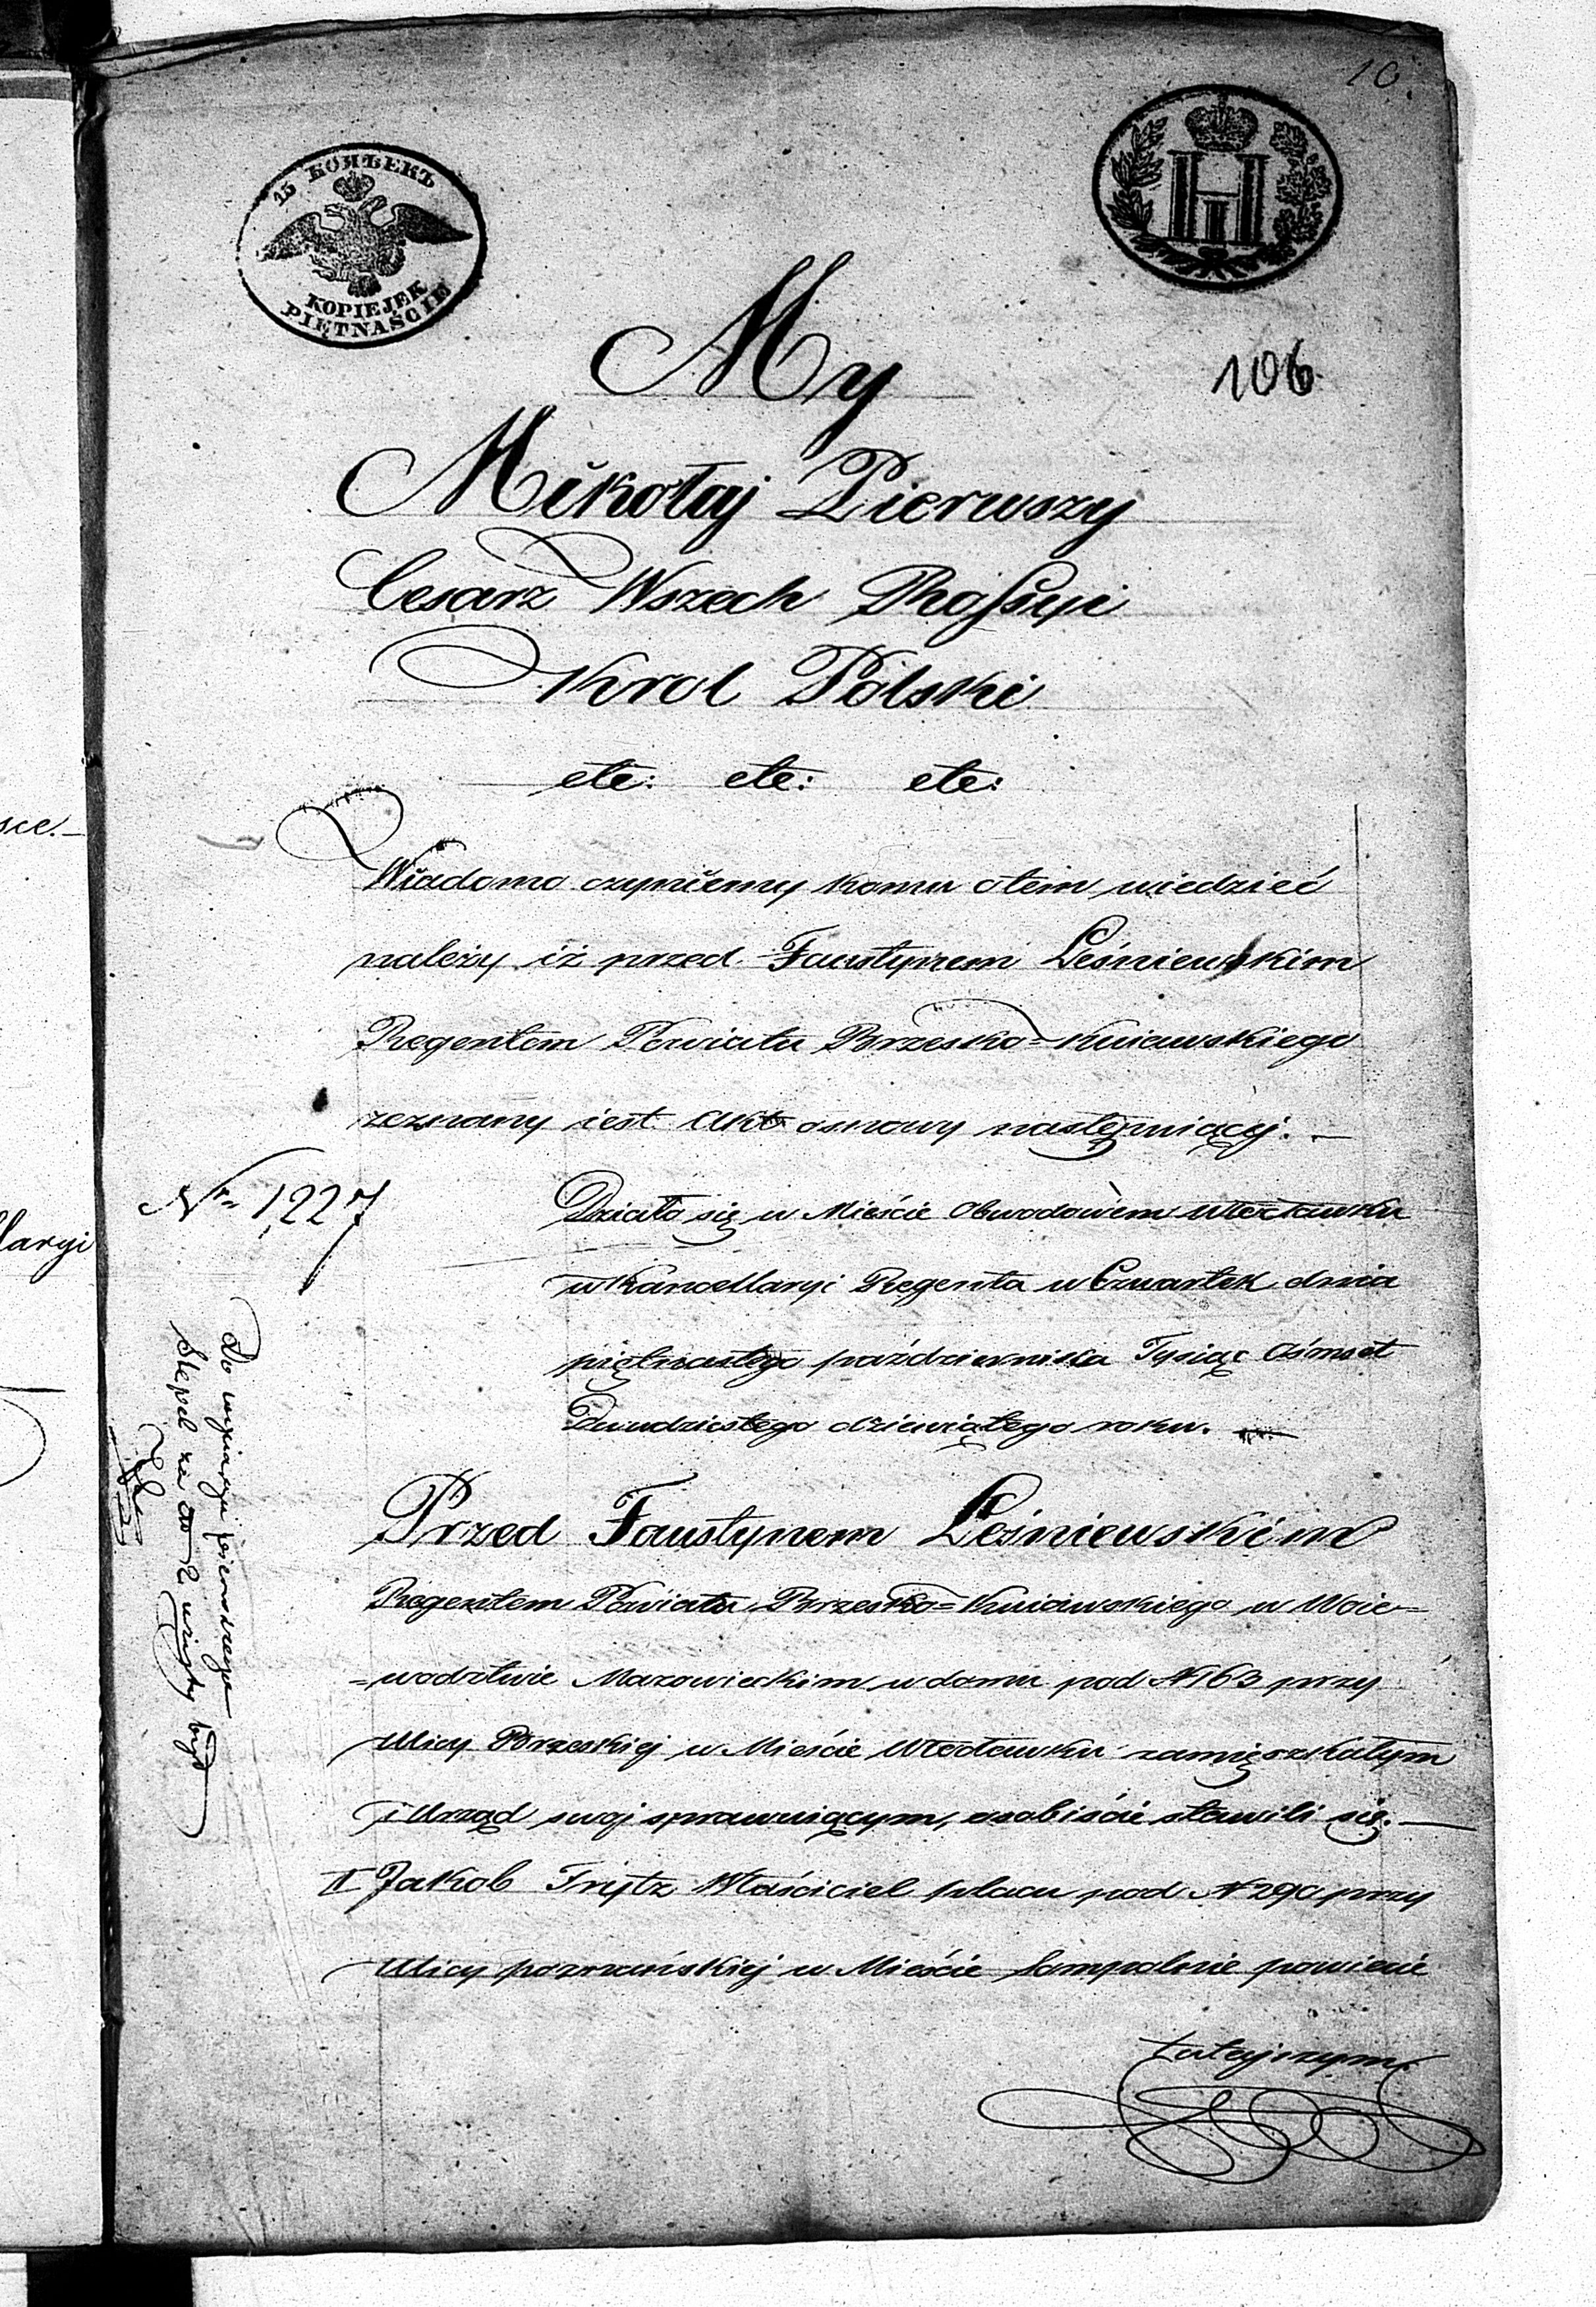 10.
15 КОПѢЕКЪ
KOPIEJEK
PIĘTNAŚCIE
106.
My
Mikołaj Pierwszy
Cesarz Wszech Rossyi
Krol Polski
etc: etc: etc:
sce.—
Wiadomo czyniemy komu otem wiedzieć
należy iż przed Faustynem Leśniewskim
Regentem Powiatu Brzesko=Kuiawskiego
zeznany iest Akt osnowy następuiący. —
Nr 1227
llaryi
Działo się w Mieście Obwodowem Włocławku
w Kancellaryi Regenta w Czwartek dnia
piętnastego października Tysiąc Ośmset
Dwudziestego dziewiątego roku. —
Do wypisu pierwszego
Stepel za zł 2 użyty był
Przed Faustynem Leśniewskim
Regentem Powiatu Brzesko=Kuiawskiego w Woie=
=wodztwie Mazowieckim w domu pod N 163 przy
Ulicy Brzeskiej w Mieście Włocławku zamięszkałym
i Urząd swoj sprawuiącym, osobiście stawili się. —
1 Jakob Trytz Właściciel placu pod N 290 przy
Ulicy poznańskiej w Mieście Sompolnie powiecie
tutejszym